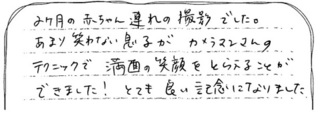 2ヶ月の赤ちゃん連れの撮影でした。
あまり笑わない息子がカメラマンさんの
テクニックで満面の笑顔をとらえることが
できました！とても良い記念になりました